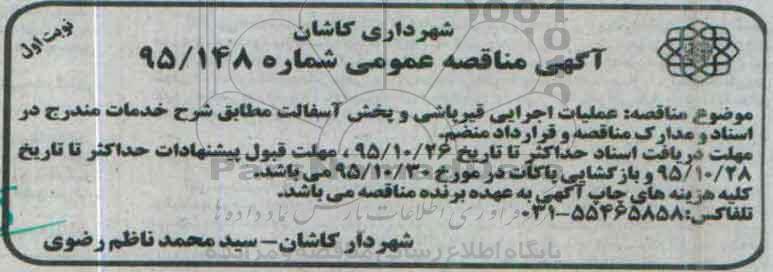 نوبت اول
شهرداری کاشان
آگهی مناقصه عمومی شماره ۹۵/۱۴۸
موضوع مناقصه: عملیات اجرایی قیرپاشی و پخش آسفالت مطابق شرح خدمات مندرج در
اسناد و مدارک مناقصه و قرارداد منضم.
مهلت دریافت اسناد حداکثر تا تاریخ ۹۵/۱۰/۲۶ ، مهلت قبول پیشنهادات حداکثر تا تاریخ
۹۵/۱۰/۲۸ و بازگشایی پاکات در مورخ ۹۵/۱۰/۳۰ می باشد.
کلیه هزینه های چاپ آگهی به عهده برنده مناقصه می باشد.
تلفاکس:۵۵۴۶۵۸۵۸-۰۳۱
شهردار کاشان – سید محمد ناظم رضوی